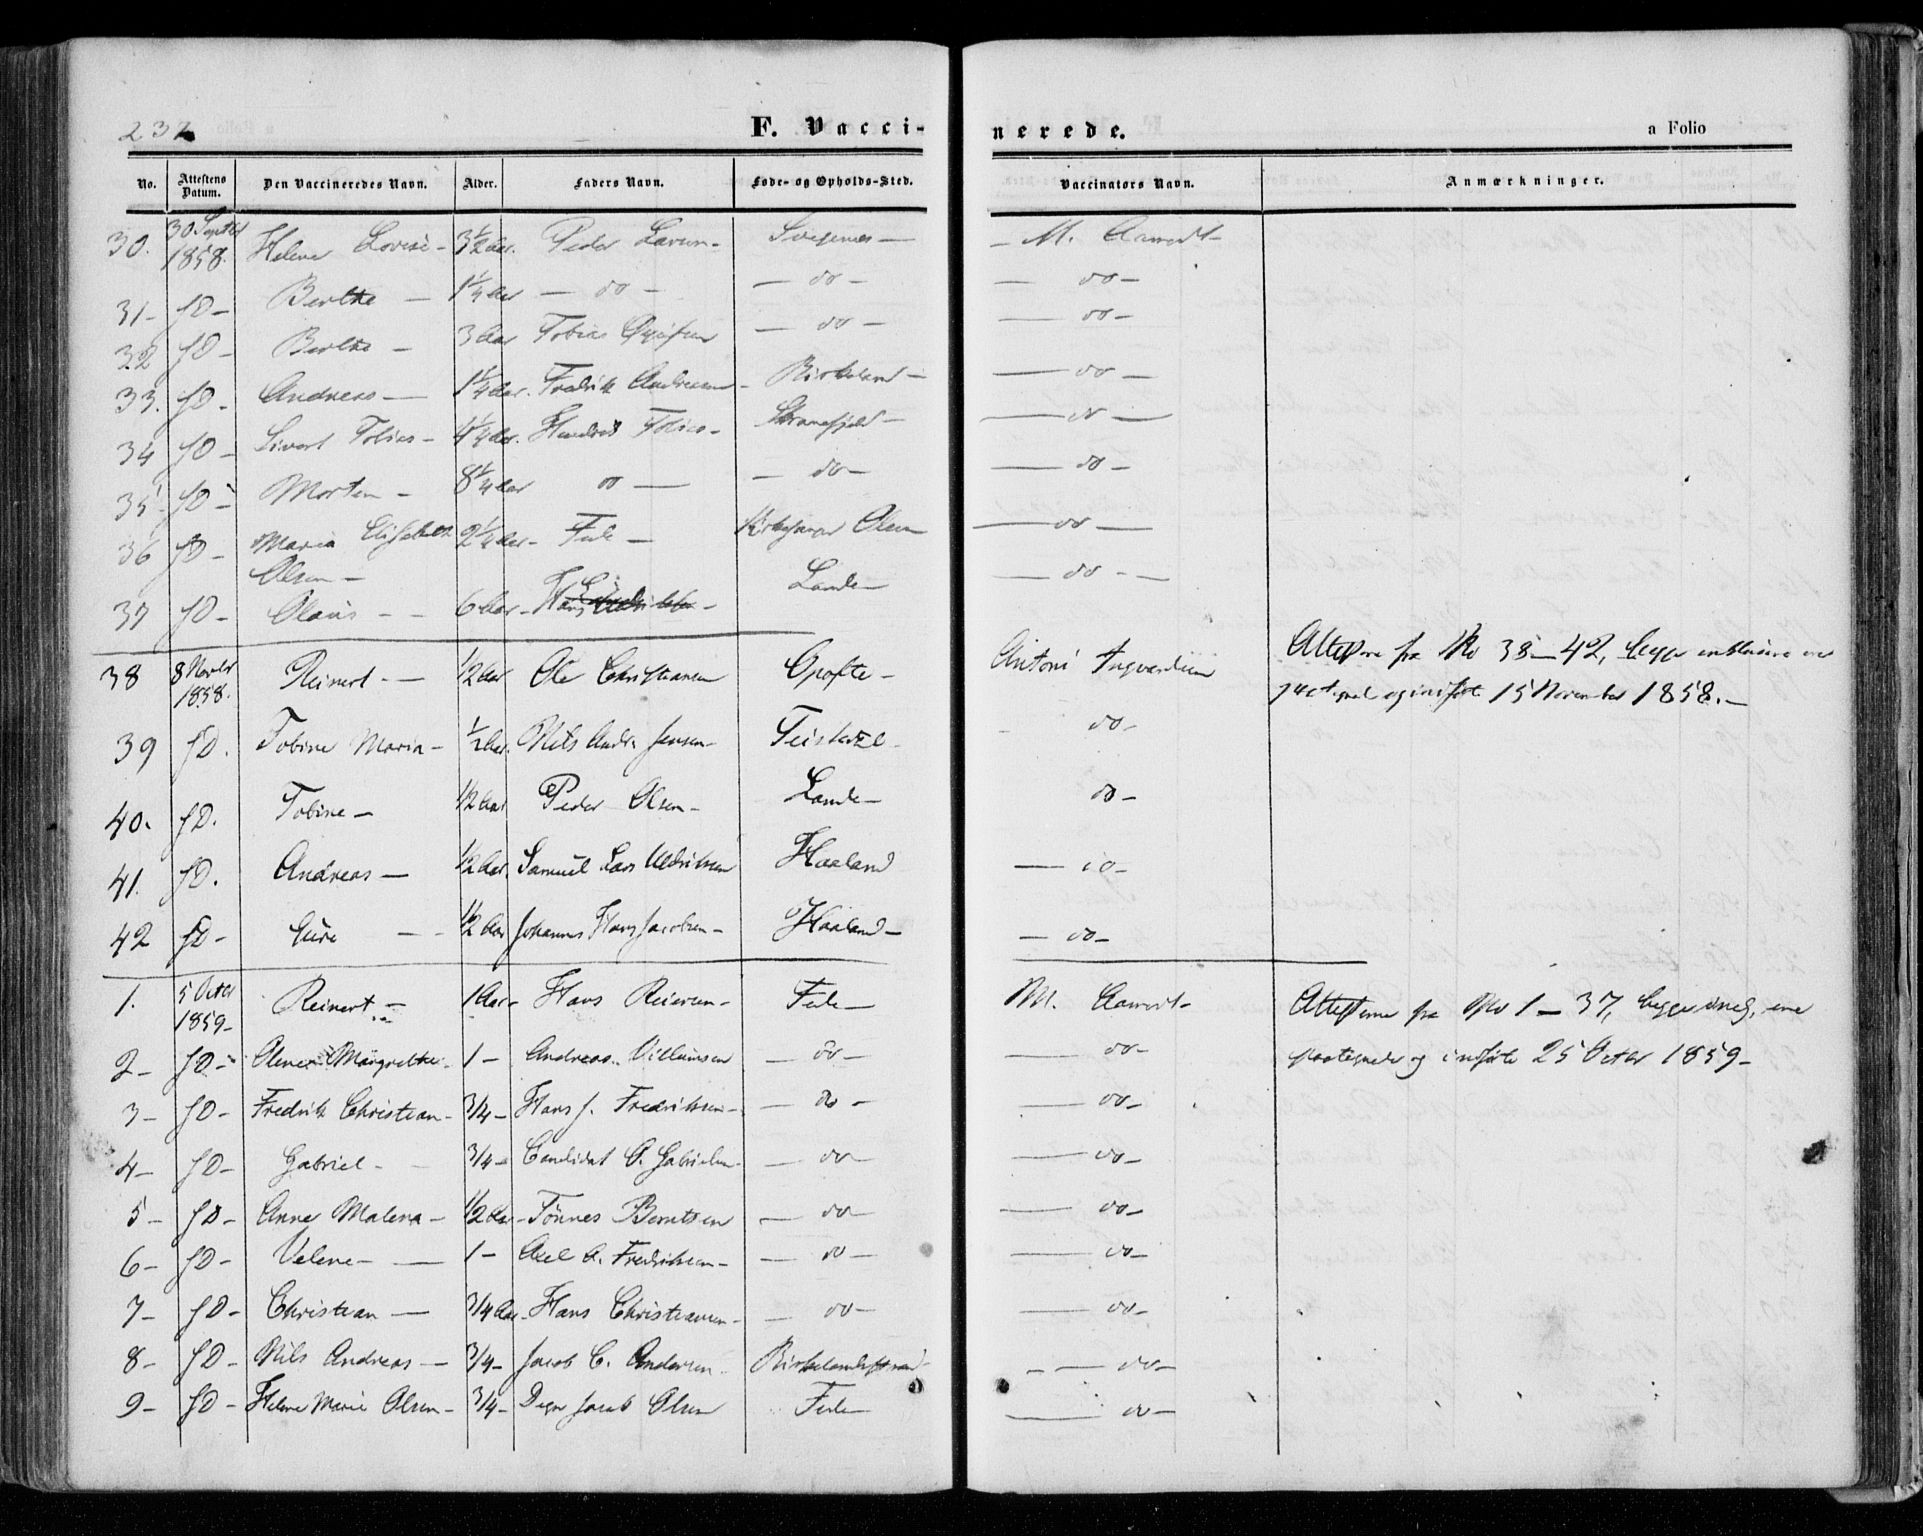 232
F. Vacci-
nerede.
a Folio
No. Attestens Datum. Den Vaccineredes Navn. Alder. Faders Navn. Føde- og Opholds-Sted. Vaccinators Navn. Anmærkninger.
30. 30 Septbr 1858. Helene Lovise - 3 1/2 Aar. Peder - M. Aamodt -
31 - sD - Berthe - 1 1/4 Aar - do - - do - - do -
32 sD - Berthe - 3 Aar Tobias - do - - do -
33. sD - Andreas - 1 1/4 Aar. Fredrik Andreasen - Birkeland - - do -
34 sD - Sivert Tobias - 1/4 Aar. Tobias - - do -
35 - sD - Morten - 8 1/4 Aar do - - do - - do -
36 sD - Maria Elisabeth 2 1/4 Aar - Fede - Olsen - do -
Olsen -
37 sD - Olaus - - 6 Aar - Hans Lande - - do -
38 8 Novbr 1858. Reinert - 1/2 Aar Ole Christiansen Opofte - Antoni Ingvardsen Attesterne fra No 38 - 42, begge inklusive ere
indført 15 November 1858. -
39 sD. Tobine Maria - 1/2 Aar. Nils Andr. Jensen - - do -
40. sD. Tobine - 1/2 Aar Peder Olsen - Lande - do -
41. sD. Andreas - 1/2 Aar. Samuel Lars Uldriksen Haaland - do -
42 sD - Gure - - 1/2 Aar Johannes Hans Jacobsen - Haaland - - do -
1. 5 Octbr 1859 - Reinert - 1 Aar - Hans Reiersen - Fede - M. Aamodt - Attesterne fra No 1 - 37, begge incl., ere
2 - sD - Olene Margrethe - 1 - Andreas Villumsen - do - - do - paategnede og indførte 25 Octbr 1859 -
3 - sD - Fredrik Christian - 3/4 - Hans J. Fredriksen - - do - - do -
4 - sD - Gabriel - 3/4 - Candidat O. Gabrielsen - - do - - do -
5 - sD - Anne Malena - 1/2 Aar - Tønnes Berntsen - do - - do -
6 - sD - Velene - 1 - Axel A. Fredriksen - - do - - do -
7 - sD - Christian - 3/4 Aar - Hans Christiansen - - do - - do -
8 - sD - Nils Andreas - 3/4 - Jacob C. Andersen - - do -
9 - sD - Helene Marie Olsen - 3/4 - Jacob Olsen Fede - - do -